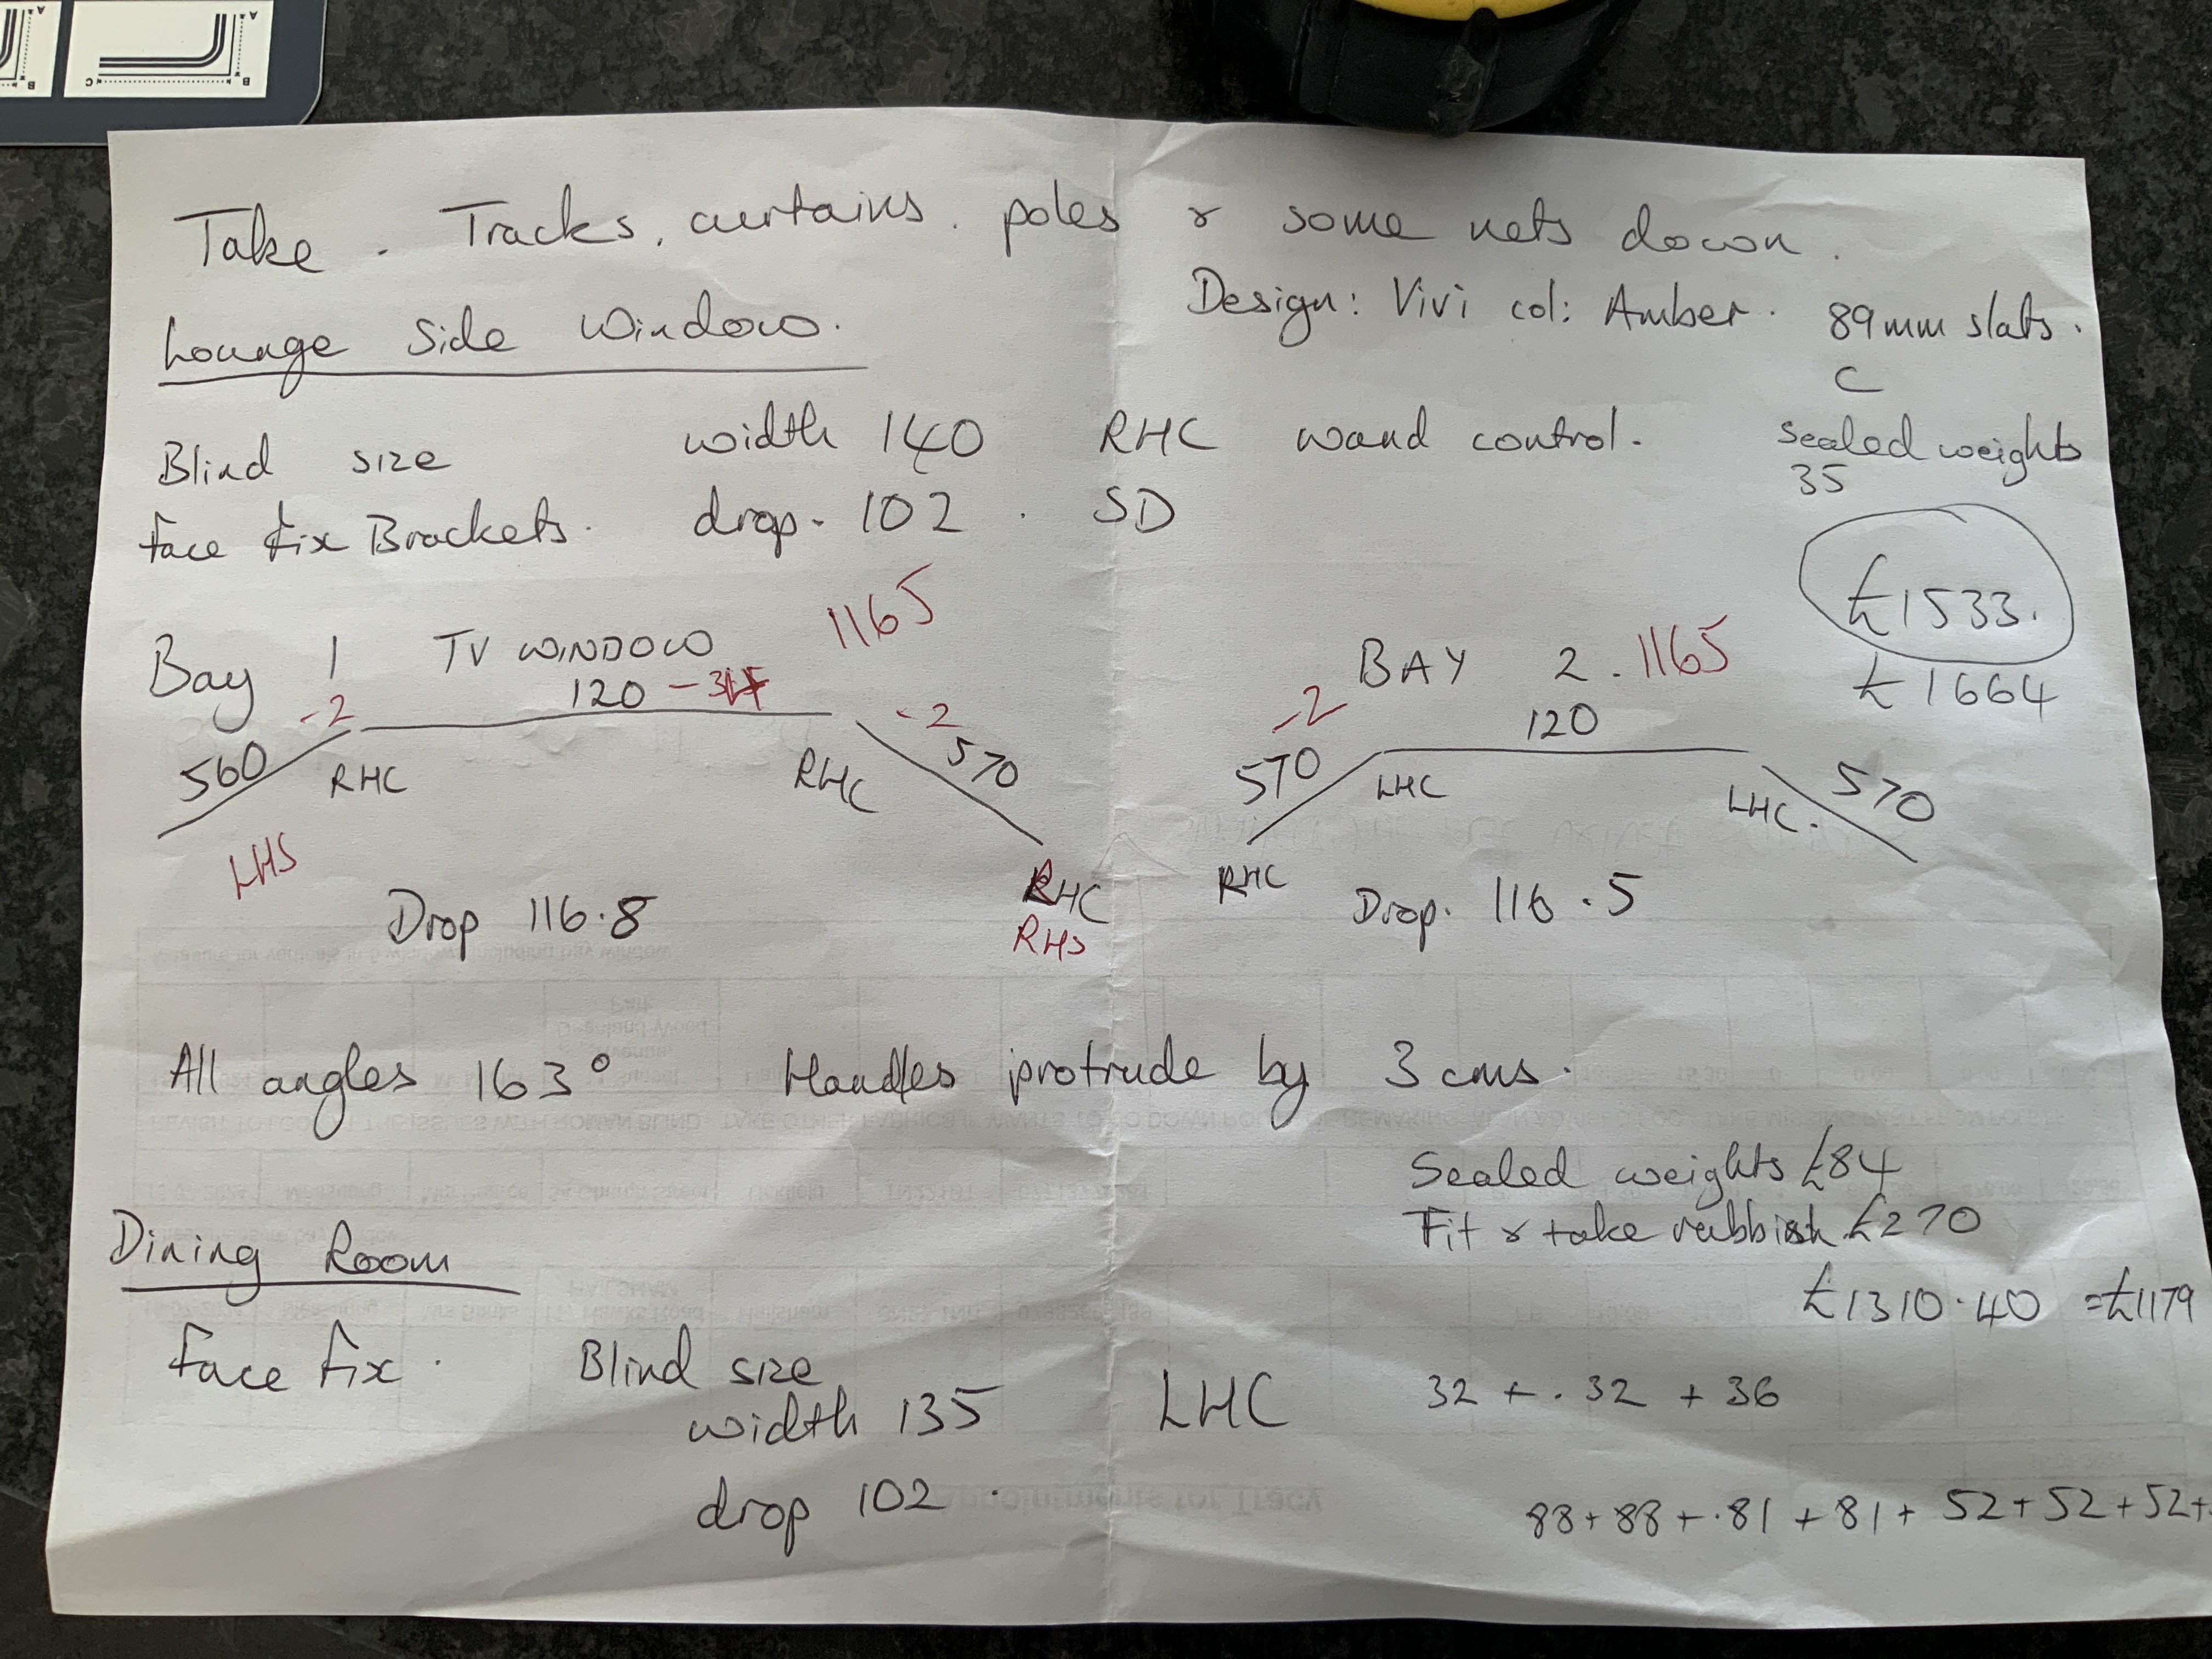 Take . Tracks, curtains. poles & some nets down.
Design: Vivi col: Amber. 89mm slats.
C
Lounge Side Window.
Blind size width 140 RHC wand control. sealed weights
35
face fix Brackets. drop. 102. SD
£1533.
£1664
Bay 1 TV WINDOW 1165
-2 120 -3 -2
560 RHC RHC 570
LHS RHC
RHS
Drop 116.8
BAY 2. 1165
-2 120
570 LHC LHC. 570
RHC
Drop. 116.5
All angles 163° Handles protrude by 3 cms.
Sealed weights £84
Fit & take rubbish £270
£1310.40 =£1179
Dining Room
face fix. Blind size
width 135 LHC
drop 102.
32 + . 32 + 36
88+88+.81+81+52+52+52+
A
B
C
A
B
Appointments for Tracy